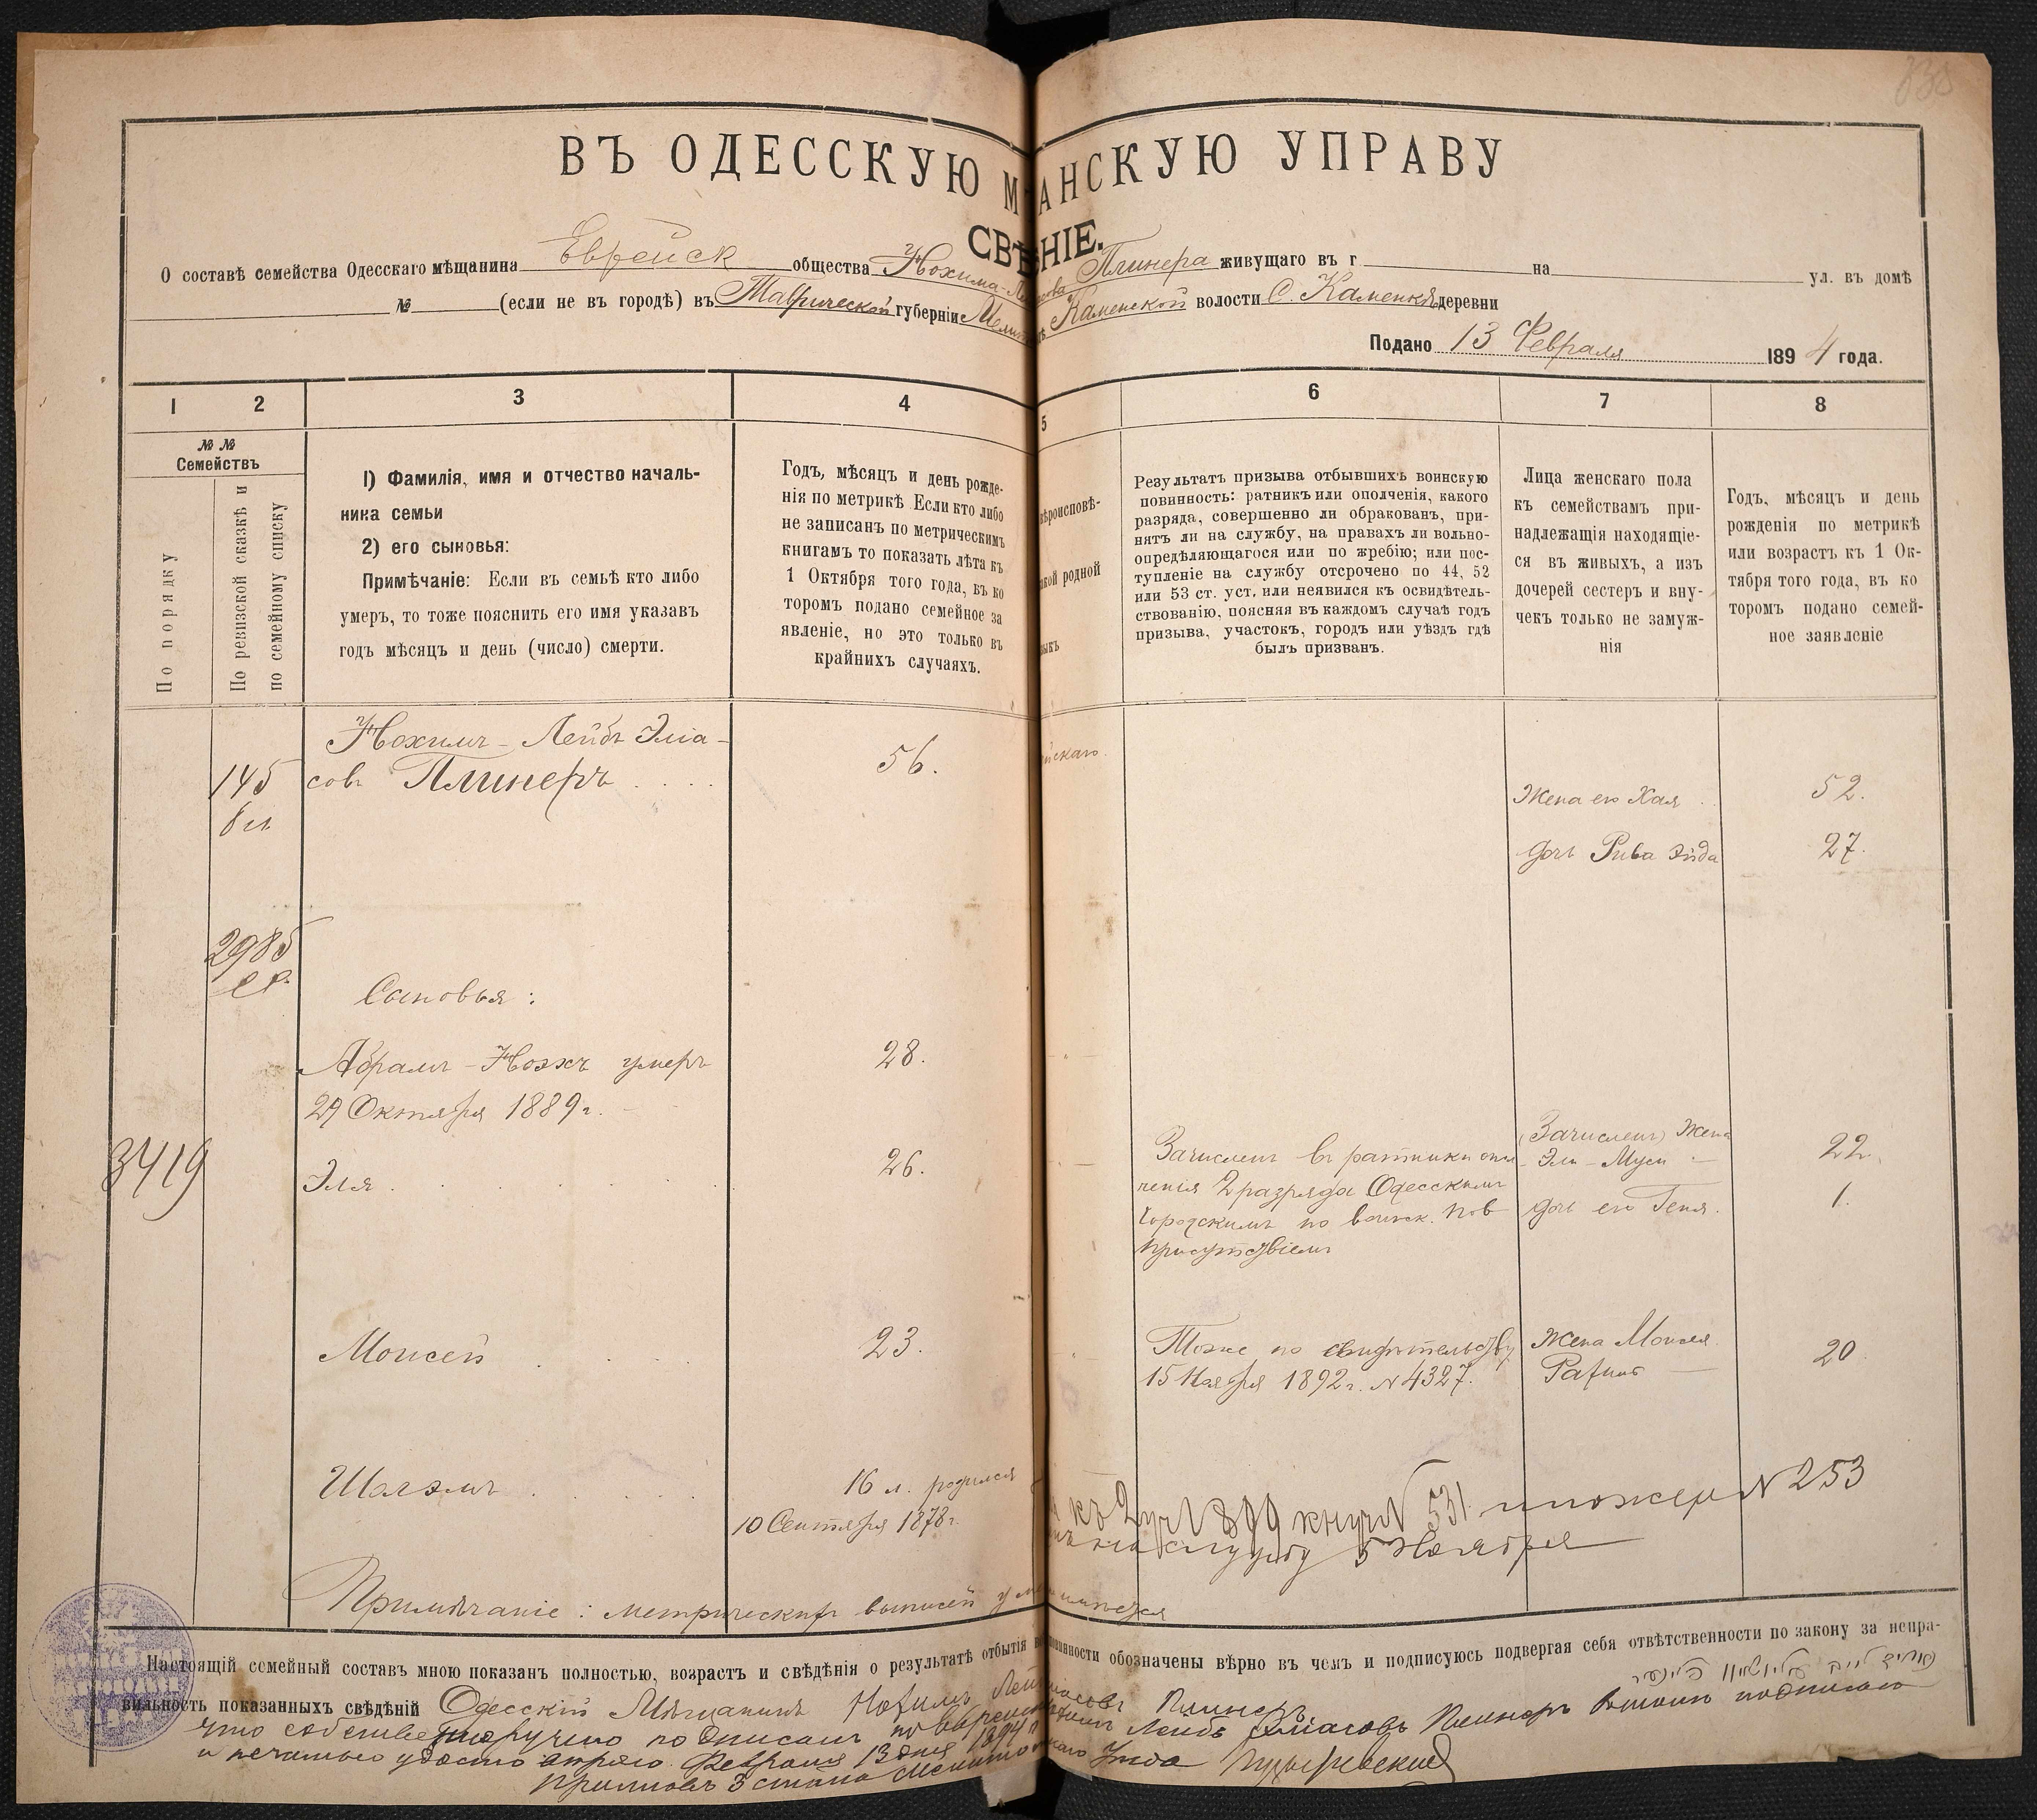 ВЪ ОДЕССКУЮ М АНСКУЮ УПРАВУ
СВѢ НІЕ.
О составѣ семейства Одесскаго мѣщанина Еврейск общества Нохима-Ле Плинера живущаго въ г на ул. въ домѣ
№ (если не въ городѣ) въ Таврической губерніи Мелит Каменской волости С. Каменкѣ деревни
Подано 13 Февраля 1894 года.
1 2 3 4 5 6 7 8
№ №
Семействъ
По порядку
По ревизской сказкѣ и
по семейному списку
1) Фамилія, имя и отчество началь-
ника семьи
2) его сыновья:
Примѣчаніе: Если въ семьѣ кто либо
умеръ, то тоже пояснить его имя указавъ
годъ мѣсяцъ и день (число) смерти.
Годъ, мѣсяцъ и день рожде-
нія по метрикѣ Если кто либо
не записанъ по метрическимъ
книгамъ то показать лѣта къ
1 Октября того года, въ ко
торомъ подано семейное за
явленіе, но это только въ
крайнихъ случаяхъ.
ѣроисповѣ-
кой родной
зыкъ
Результатъ призыва отбывшихъ воинскую
повинность: ратникъ или ополченія, какого
разряда, совершенно ли обракованъ, при-
нятъ ли на службу, на правахъ ли вольно-
опредѣляющагося или по жребію; или пос-
тупленіе на службу отсрочено по 44, 52
или 53 ст. уст. или неявился къ освидѣтель-
ствованію, поясняя въ каждомъ случаѣ годъ
призыва, участокъ, городъ или уѣздъ гдѣ
былъ призванъ.
Лица женскаго пола
къ семействамъ при-
надлежащія находящіе-
ся въ живыхъ, а изъ
дочерей сестеръ и вну-
чекъ только не замуж-
нія
Годъ, мѣсяцъ и день
рожденія по метрикѣ
или возрастъ къ 1 Ок-
тября того года, въ ко
торомъ подано семей-
ное заявленіе
Нохимъ-Лейбъ Эліа-
145 совъ Плинеръ 56. йскаго
Жена его Хая 52.
дочь Рива Эйда 27.
2985
Сыновья:
Абрамъ-Ноэхъ умеръ 28.
29 Октября 1889 г.
3419
Эля 26.
Зачисленъ въ ратники опол
ченія 2 разряда Одесскимъ
Городскимъ по воинск. пов
присутствіемъ
(Зачисленъ) Жена
Эли-Муси 22.
дочь его Геня. 1.
Моисей 23.
Тоже по свидѣтельству
15 Ноября 1892 г. № 4327.
Жена Моисея 20
Шлэмъ 16 л. родился
10 Сентября 1878 г.
къ 2 уч 1899 книги № 531 № 253
на службу 5 Ноября
Примѣчаніе: метрическихъ выписей у м имѣется
Настоящій семейный составъ мною показанъ полностью, возрастъ и свѣдѣнія о результатѣ отбытія повинности обозначены вѣрно въ чемъ и подписуюсь подвергая себя отвѣтственности по закону за непра-
вильность показанныхъ свѣдѣній Одесскій Мѣщанинъ Нохимъ Лейб Эліасовъ Плинеръ
что собственноручно подписалъ Лейбъ Эліасовъ Плинеръ въ томъ подписью
и печатью удостовѣряю. Февраля 13 дня 1894 г.
Приставъ 3 стана Мелитопольскаго Уѣзда